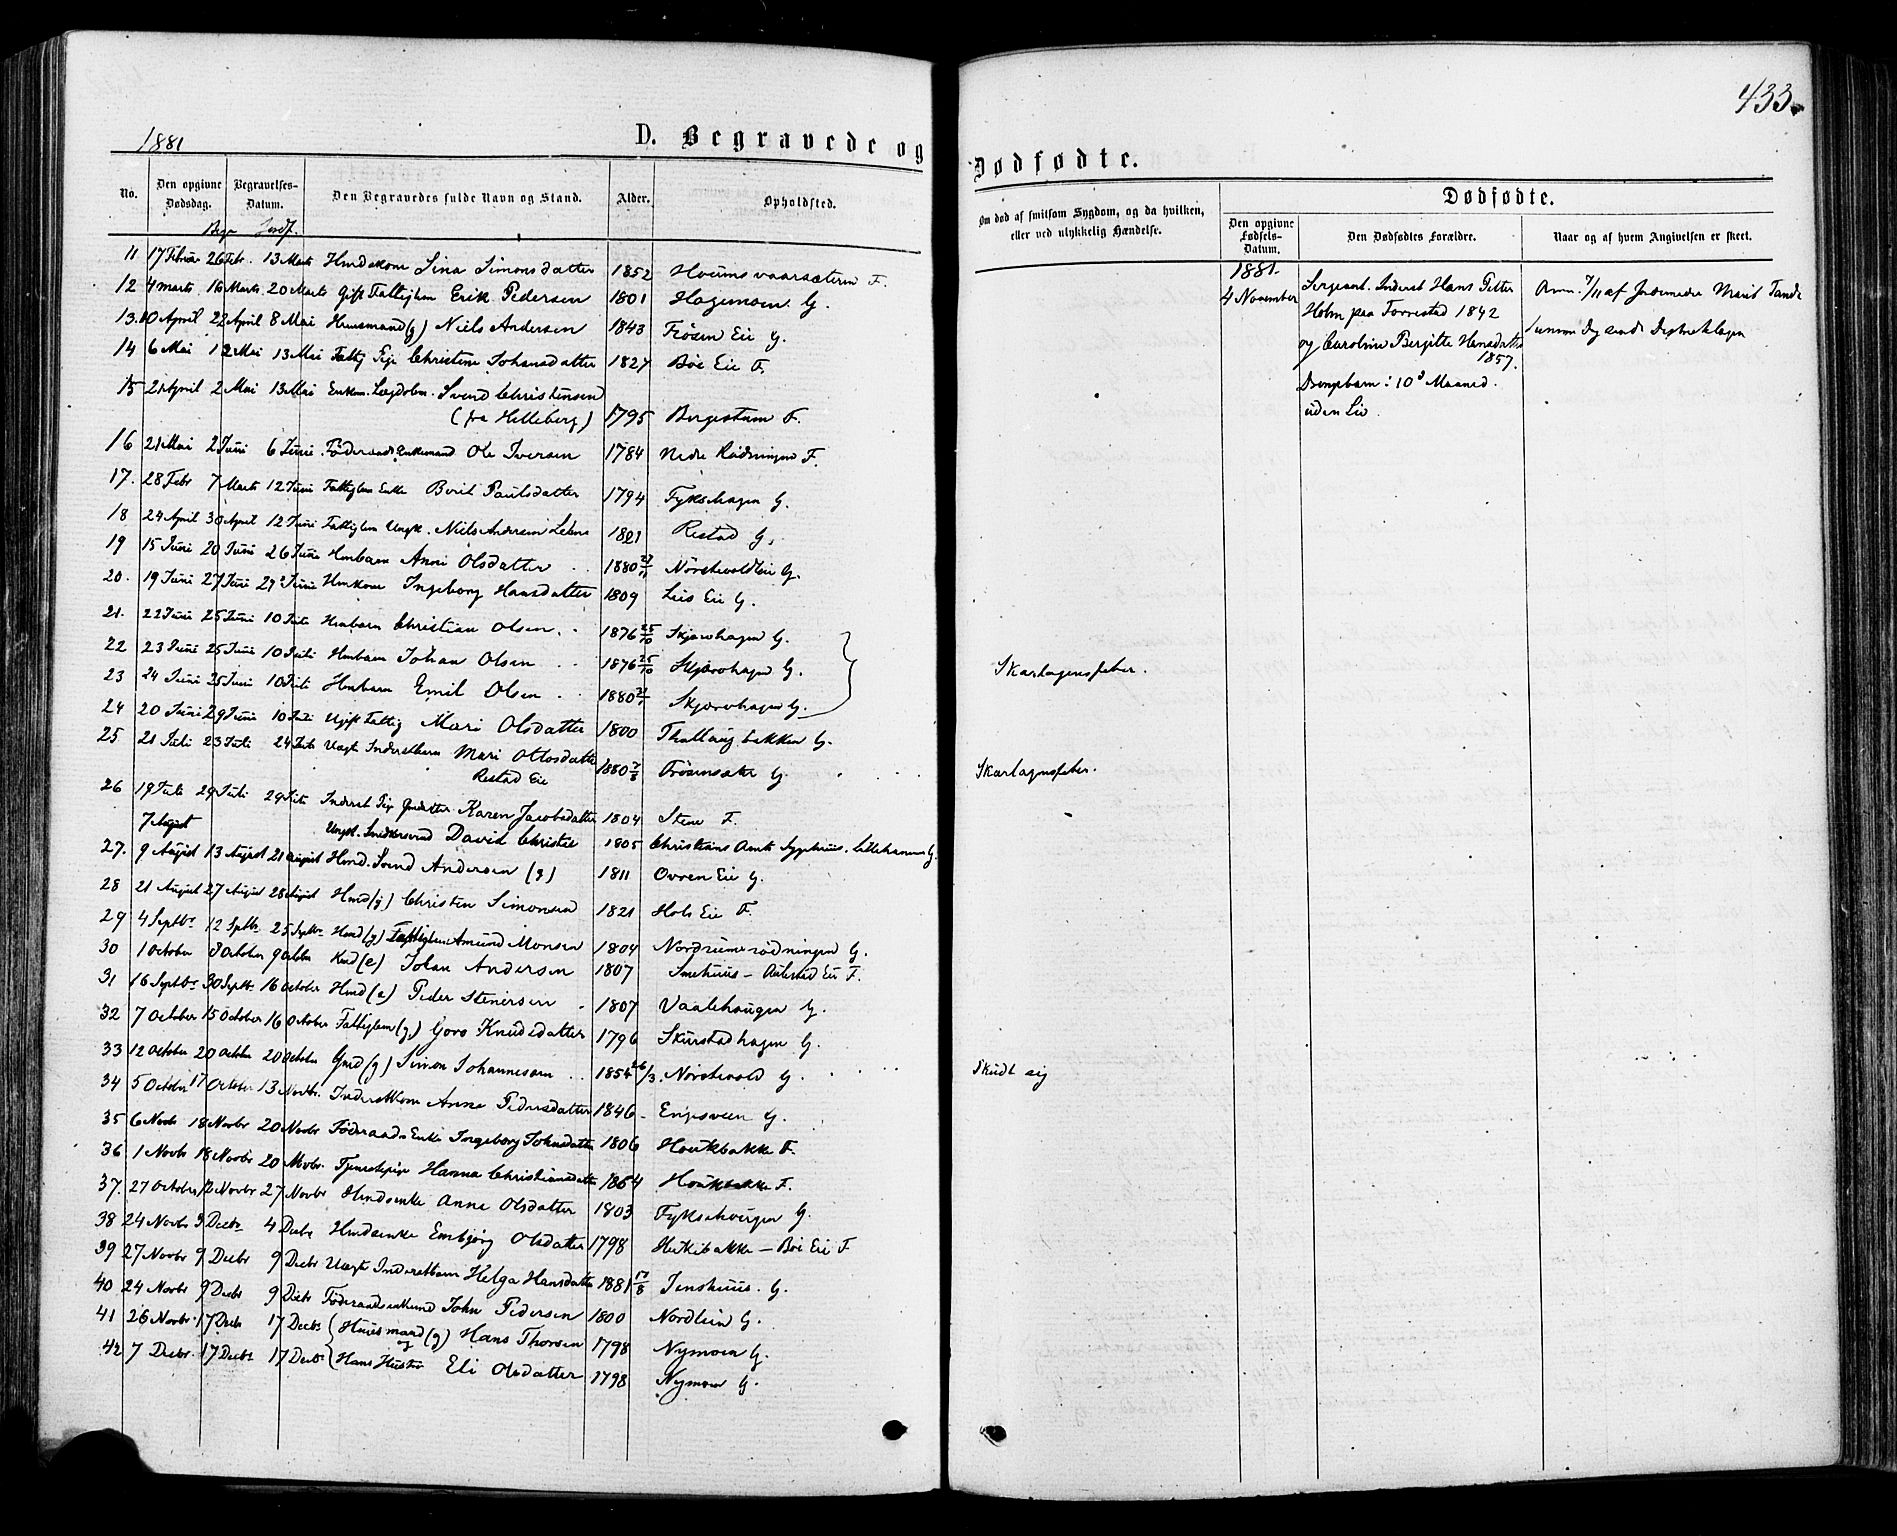 433.
1881
D. Begravede og
Dødfødte.
No.
Den opgivne Dødsdag.
Begravelses-Datum.
Den Begravedes fulde Navn og Stand.
Alder.
Opholdsted.
Om død af smitsom Sygdom, og da hvilken, eller ved ulykkelig Hændelse.
Dødfødte.
Den opgivne Fødsels-Datum.
Den Dødfødtes Forældre.
Naar og af hvem Angivelsen er skeet.
Begr Jordf.
11 17 Februar 26 Febr. 13 Marts Hmdskone Sina Simonsdatter 1852 F.
12 4 Marts 16 Marts 20 Marts Gift Fattiglem Erik Pedersen 1801 Hagemoen G.
13. 10 April 22 April 8 Mai Huusmand (g) Niels Andersen 1843 Frøsen Eie G.
14 6 Mai 12 Mai 13 Mai Fattig Pige Christine Johansdatter 1827 Bøe Eie F.
15 21 April 2 Mai 13 Mai Enkem. Lægdslem. Svend Christensen
(fra Helleberg) 1795 Bergestuen F.
16 21 Mai 2 Juni 6 Juni Føderaads Enkemand Ole Iversen 1784 Nedre Rødningen F.
17. 28 Febr 7 Marts 12 Juni Fattiglem Enke Berit Paulsdatter 1794 Fykschagen G.
18 24 April 30 April 12 Juni Fattiglem Ungk. Niels Andersen 1821 Restad G.
19 15 Juni 20 Juni 26 Juni Hmbarn Anne Olsdatter 1880 Nørstevoldeie G.
20. 19 Juni 27 Juni 29 Juni Hmkone Ingeborg Hansdatter 1809 Liis Eie G.
21. 22 Juni 25 Juni 10 Juli Hmbarn Christian Olsen 1876 25/10 Skjørvhagen G.
22 23 Juni 25 Juni 10 Juli Hmbarn Johan Olsen 1876 25/10 Skjørvhagen G. Skarlagensfeber.
23 24 Juni 25 Juni 10 Juli Hmbarn Emil Olsen 1880 Skjørvhagen G.
24 20 Juni 29 Juni 10 Juli Ugift Fattig Mari Olsdatter 1800 Thallaugbakken G.
25 21 Juli 23 Juli 24 Juli Uægte Inderstbarn Mari Ottosdatter 1880 7/8 Frøsensæter G. Skarlagensfeber.
Restad Eie
26 19 Juli 29 Juli 29 Juli Inderst Pige Karen Jacobsdatter 1804 Stene F.
7 August Ungk. Snedkersvend David Christie 1805 Christians Amts Sygehuus. Lillehammer G.
27. 9 August 13 August 21 August Hmd. Svend Andersen (g) 1811 Ovren Eie G.
28 21 August 27 August 28 August Hmd (g) Christen Simonsen 1821 Hols Eie F.
29 4 Septbr 12 Septbr 25 Septbr Hmd (g) Fattiglem Amund Monsen 1804 Nordrumsrødningen G.
30 1 October 8 October 9 October Kmd (e) Johan Andersen 1807 Smehuus - Aulestad Eie F.
31 16 Septbr 30 Septbr 16 October Hmd (e) Peder Stenersen 1807 Vaalehaugen G.
32 7 October 15 October 16 October Fattiglem (g) Goro Knudsdatter 1796 Skurstadhagen G.
33 12 October 20 October 20 October Gmd (g) Simon Johannesen 1854 26/3 Nørstevold G. Skudt sig
34 5 October 17 October 13 Novbr. Inderstkone Anne Pedersdatter 1846 Engesveen G.
35 6 Novbr 18 Novbr 20 Novbr Føderaads Enke Ingeborg Johnsdatter 1806 Haukbakke F.
36 1 Novbr 18 Novbr 20 Novbr. Tjenestepige Hanna Christiansdatter 1864 Haukbakke F.
37. 27 October 12 Novbr 27 Novbr Hmdsenke Anne Olsdatter 1803 Fykschougen G.
38 24 Novbr 3 Decbr 4 Decbr Hmdsenke Embjørg Olsdatter 1798 Heskebakke - Bøe Eie F.
39 27 Novbr 9 Decbr 9 Decbr Uægte Inderstbarn Helga Hansdatter 1881 17/8 Jenshuus. G.
40 24 Novbr 9 Decbr 9 Decbr Føderaadsenkemd John Pedersen 1800 Nordlien G.
41 26 Novbr. 17 Decbr 17 Decbr Huusmand (g) Hans Thorsen 1798 Nymoen G.
og
42 7 Decbr. 17 Decbr 17 Decbr Hans Hustru Eli Olsdatter 1798 Nymoen G.
1881.
4 November
Sergeant. Inderst Hans Petter
Holm paa Forrestad 1842
og Caroline Bergitte Hansdatter
1857.
Drengebarn: 10de Maaned.
uden Liv.
Anm. 7/11 af Jordemoder Marit Tande